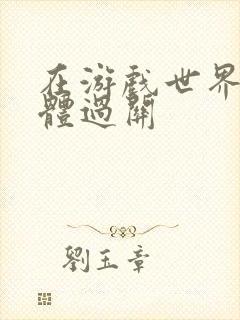 在游戲世界
體過關
劉玉章